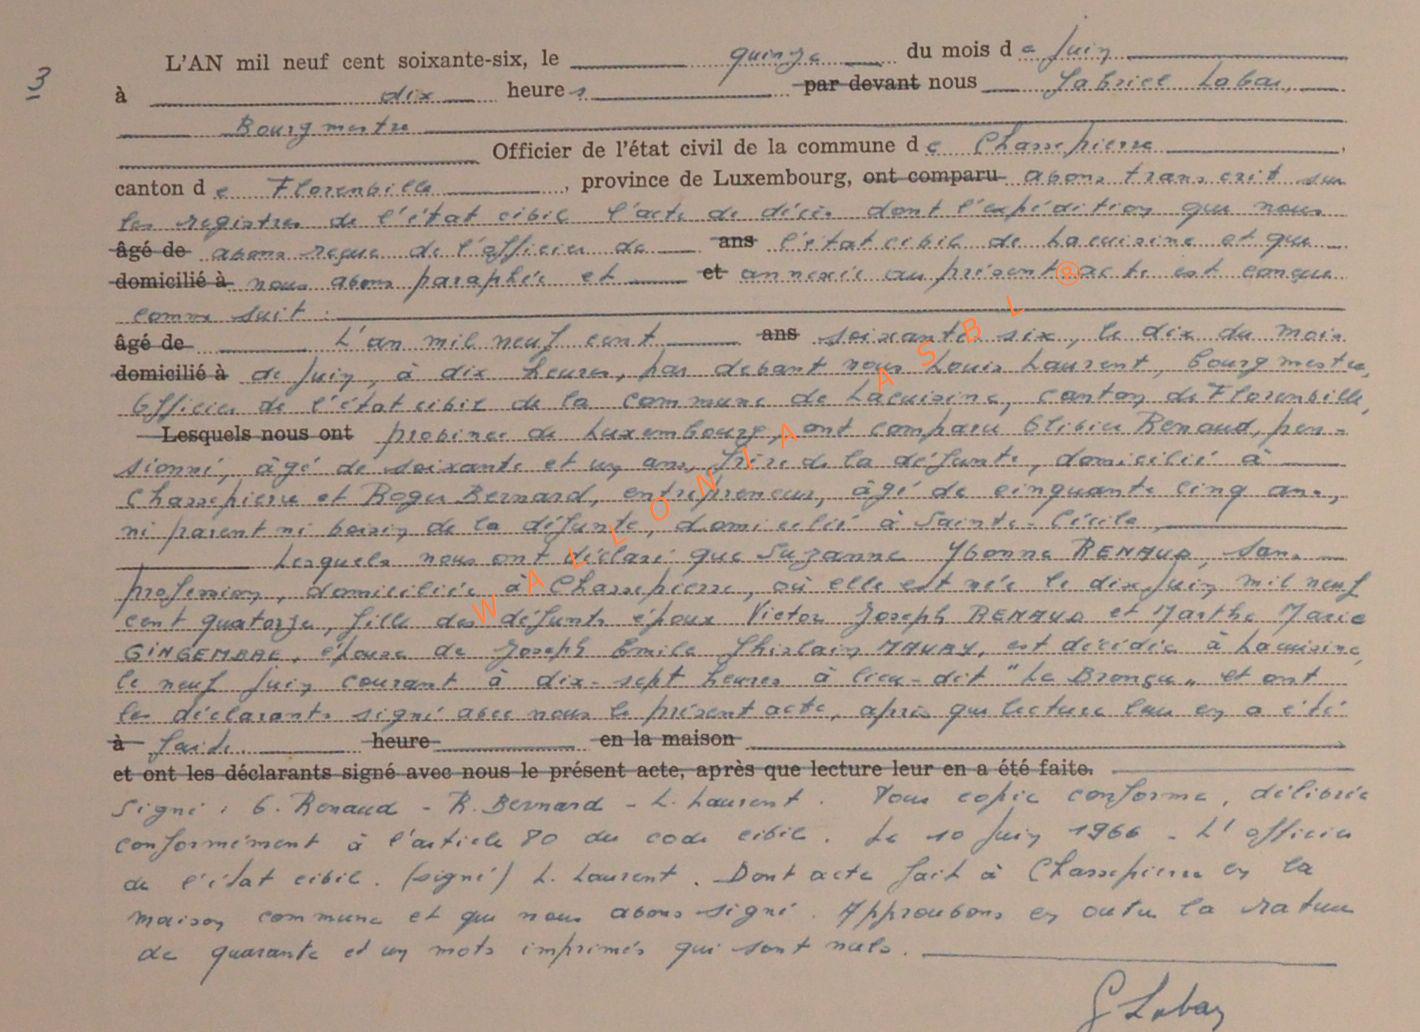 3
L'AN mil neuf cent soixante-six, le quinze du mois de Juin
à dix heures par devant nous Gabriel Labar,
Bourgmestre
Officier de l'état civil de la commune de Chassepierre,
canton de Florenville, province de Luxembourg, ont comparu avons transcrit sur
les registres de l'état civil l'acte de décès dont l'expédition que nous
âgé de avons reçue de l'officier de ans l'état civil de Lacuisine et que
domicilié à nous avons paraphée et et annexée au présent acte est conçue
comme suit :
âgé de L'an mil neuf cent ans soixante six, le dix du mois
domicilié à de Juin, à dix heures, par devant nous Louis Laurent, bourgmestre,
Officier de l'état civil de la commune de Lacuisine, canton de Florenville,
Lesquels nous ont province de Luxembourg, ont comparu Olivier Renaud, pen-
sionné, âgé de soixante et un ans, frère de la défunte, domicilié à
Chassepierre et Roger Bernard, entrepreneur, âgé de cinquante cinq ans,
ni parent ni voisin de la défunte, domicilié à Sainte-Cécile,
Lesquels nous ont déclaré que Suzanne Yvonne RENAUD, sans
profession, domiciliée à Chassepierre, où elle est née le dix Juin mil neuf
cent quatorze, fille des défunts époux Victor Joseph RENAUD et Marthe Marie
GINGEMBRE, épouse de Joseph Emile Ghislain MAURY, est décédée à Lacuisine,
le neuf Juin courant à dix-sept heures à lieu-dit "Le Bronçu" et ont
les déclarants signé avec nous le présent acte, après que lecture leur en a été
à faite. heure en la maison
et ont les déclarants signé avec nous le présent acte, après que lecture leur en a été faite.
Signé : O. Renaud - R. Bernard - L. Laurent. Pour copie conforme, délivrée
conformément à l'article 80 du code civil. Le 10 Juin 1966 - L'officier
de l'état civil. (signé) L. Laurent. Dont acte fait à Chassepierre en la
maison commune et que nous avons signé. Approuvons en outre la rature
de quarante et un mots imprimés qui sont nuls.
G Labar
WALLONIA ASBL ®